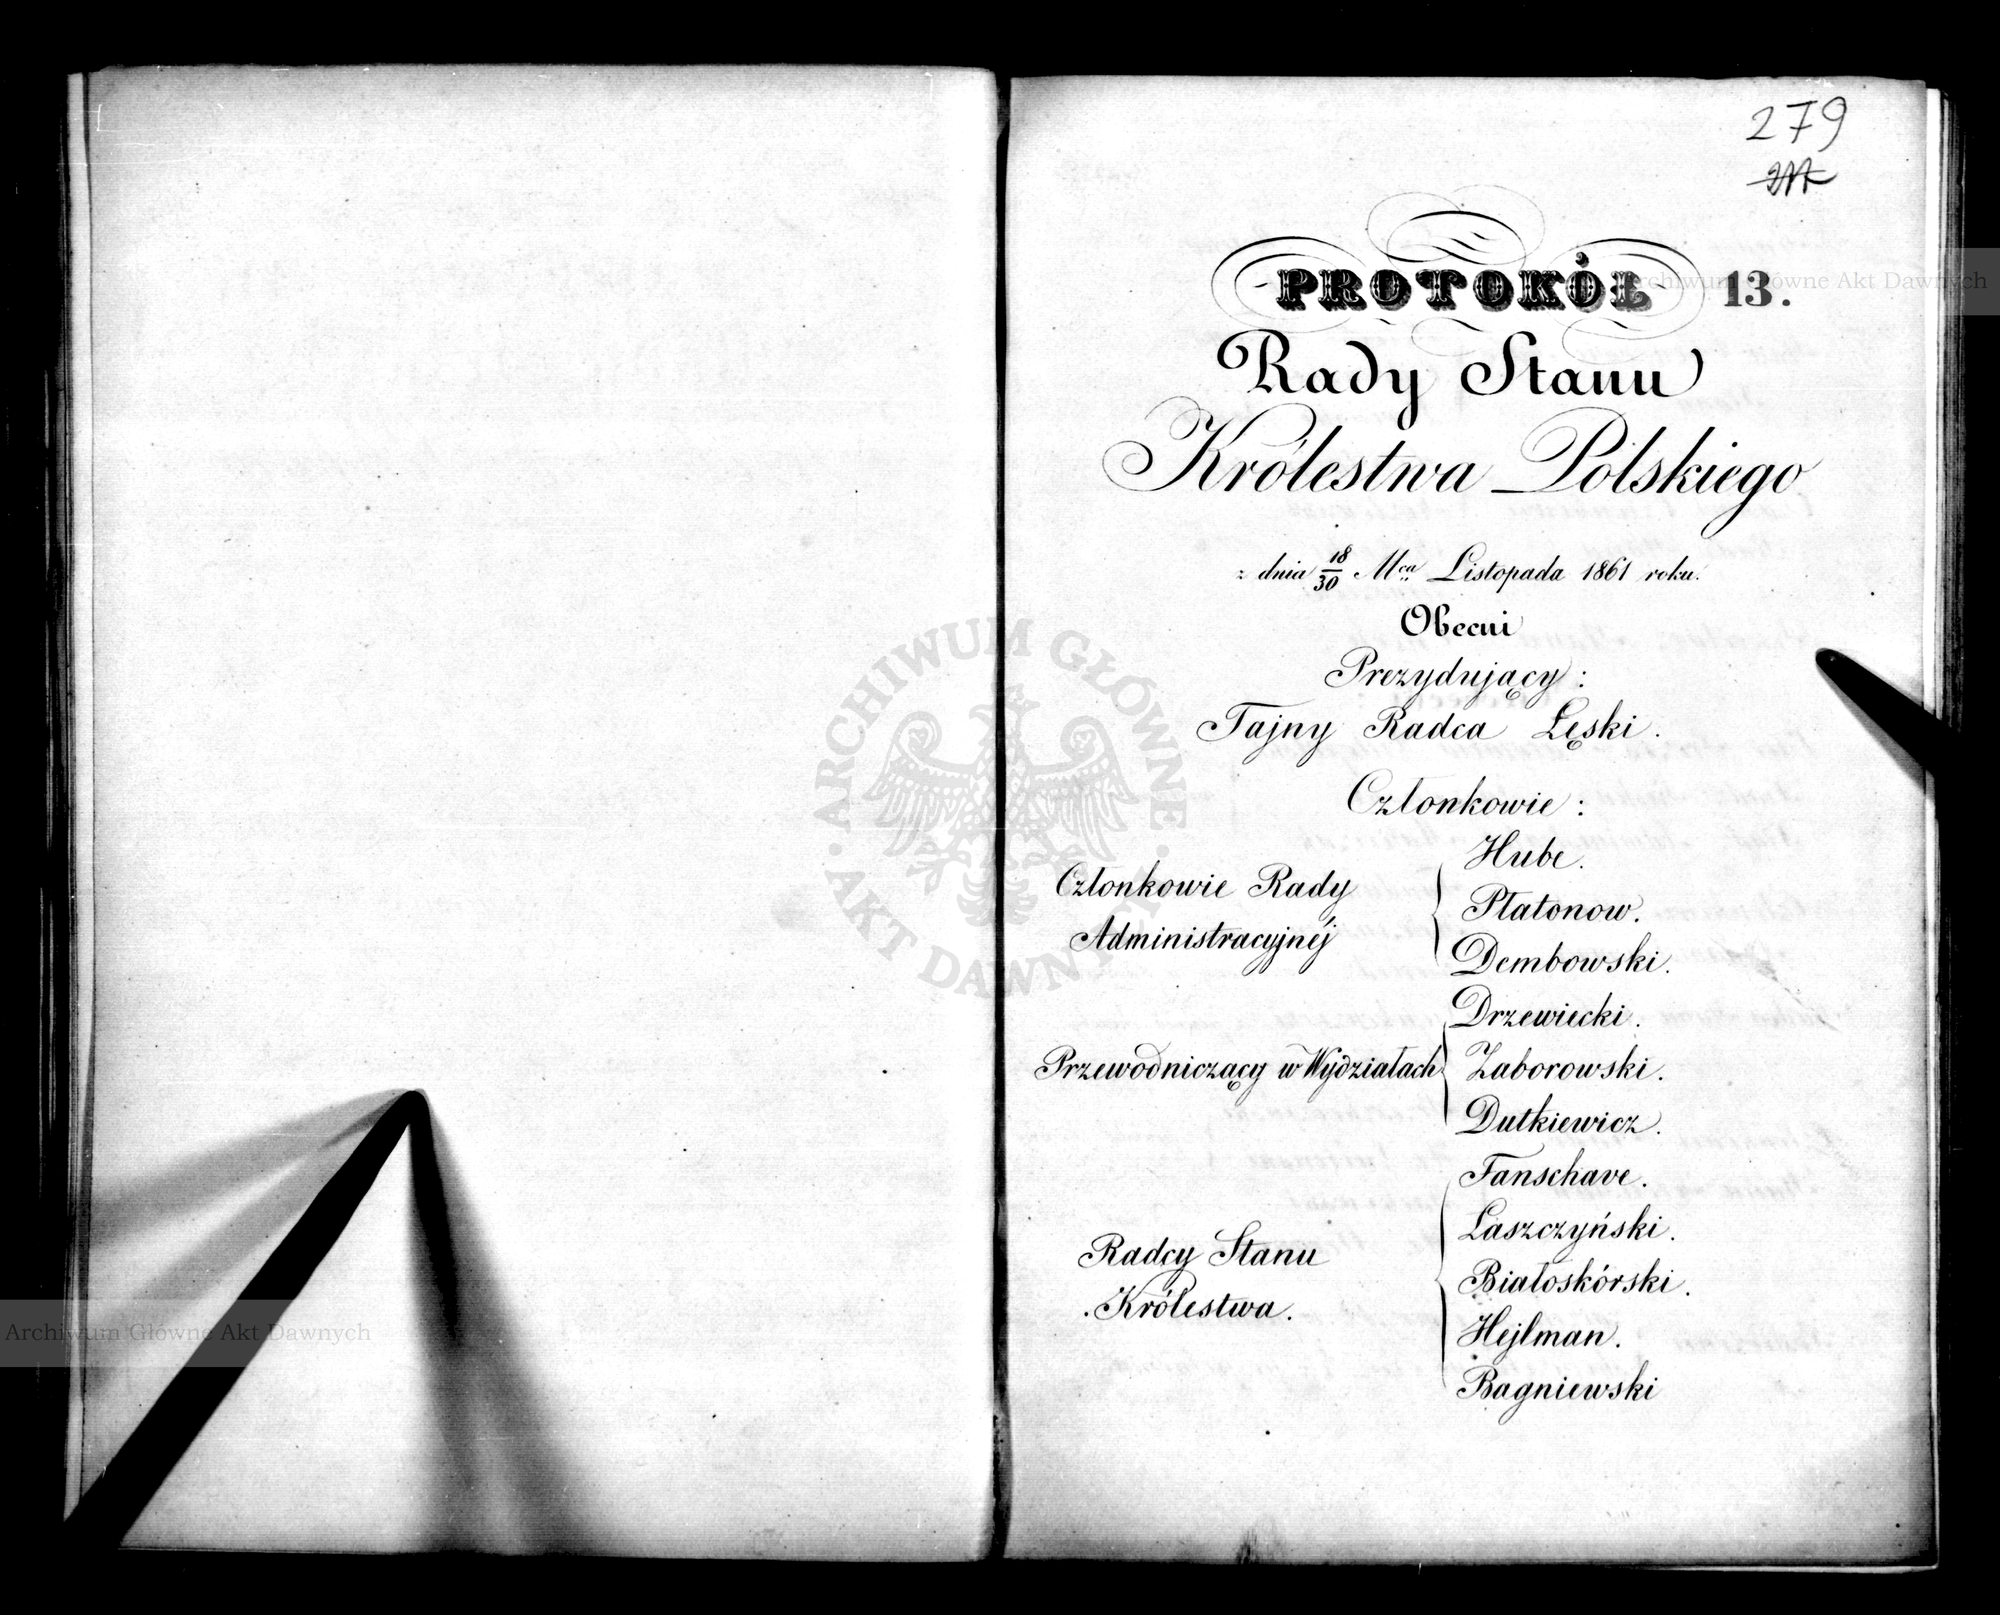 279
PROTOKÓŁ 13.
Rady Stanu
Królestwa Polskiego
z dnia 18/30 Mca Listopada 1861 roku.
Obecni
Prezydujący:
Tajny Radca Łęski.
Członkowie:
Członkowie Rady
Administracyjnéj
Hube.
Płatonow.
Dembowski.
Przewodniczący w Wydziałach
Drzewiecki.
Zaborowski.
Dutkiewicz.
Radcy Stanu
Królestwa.
Fanschave.
Łaszczyński.
Białoskórski.
Hejlman.
Bagniewski
Archiwum Główne Akt Dawnych
ARCHIWUM GŁÓWNE
AKT DAWNYCH
Archiwum Główne Akt Dawnych